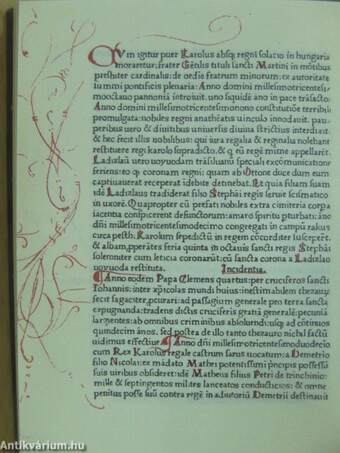 Cvm igitur puer Karolus absqꝫ regni solacio in hungaria
moraretur: frater Gẽtilis tituli sancti Martini in mõtibus
presbiter cardinalis: de ordiẽ fratrum minorum: ex autoritate
summi pontificis plenaria: Anno domini millesimotricentesi
mooctauo pannoniã introiuit. uno siquidẽ año in pace trãsacto:
Anno domini millesimotricentesimonono constitutiõe terribili
promulgata: nobiles regni anathiatis uinculo innodauit. pau
peribus uero & diuitibus uniuersis diuina strictius interdixit.
& hec fecit illis nobilibus: qui iura regalia & reginalia nolebant
restituere regi karolo supradicto. & q eũ regẽ minime appellarẽt.
Ladislaũ uero uoyuodam trãsiluanũ speciali excõmunicatione
feriens: eo q coronam regni: quam ab Ottone duce dum eum
captiuauerat receperat idebite detinebat. Et quia filiam suam
idẽ Ladislaus tradiderat filio Stephãi regis seruie scismatico
in uxorẽ. Quapropter cũ prefati nobiles extra cimiteria corpa
iacentia conspicerent defunctorum: amaro spiritu pturbati: año
dñi millesimotricentesimodecimo congregati in campũ rakus
circa pesth. Karolum sepedictũ in regem cõcorditer susceperẽt.
& albam, pperãtes feria quinta ĩ octauis sancti regis Stephãi
solemniter eum leticia coronarũt: cũ sancta corona a Ladislao
uoyuoda restituta. Incidentia.
Anno eodem Papa Clemens quartus: per cruciferos sancti
Iohannis: inter xpicolas mundi huius inexhaustũ thezaurũ
fecit sagaciter, pcurari: ad passagium generale pro terra sancta
expugnanda: tradens dictis cruciferis gratiã generalẽ: pecuniã
largientes: ab omnibus criminibus absoluendi: usqꝫ ad cõtinuos
quindecim ãnos. sed postea de illo tanto thezauro nichil factũ
uidimus effectiue. Anno dñi millesimotricentesimoduodecio
cum Rex Karolus regale castrum Sarus uocatum: a Demetrio
filio Nicolai: ex mãdato Mathei potentissimi pricipis possessũ
suis uiribus obsideret: idẽ Matheus filius Petri de trinchinio:
mille & septingentos milites lanceatos conducticios: & omne
penitus posse suũ contra regẽ in adiutoriũ Demetrii destinauit
Antikvárium.hu